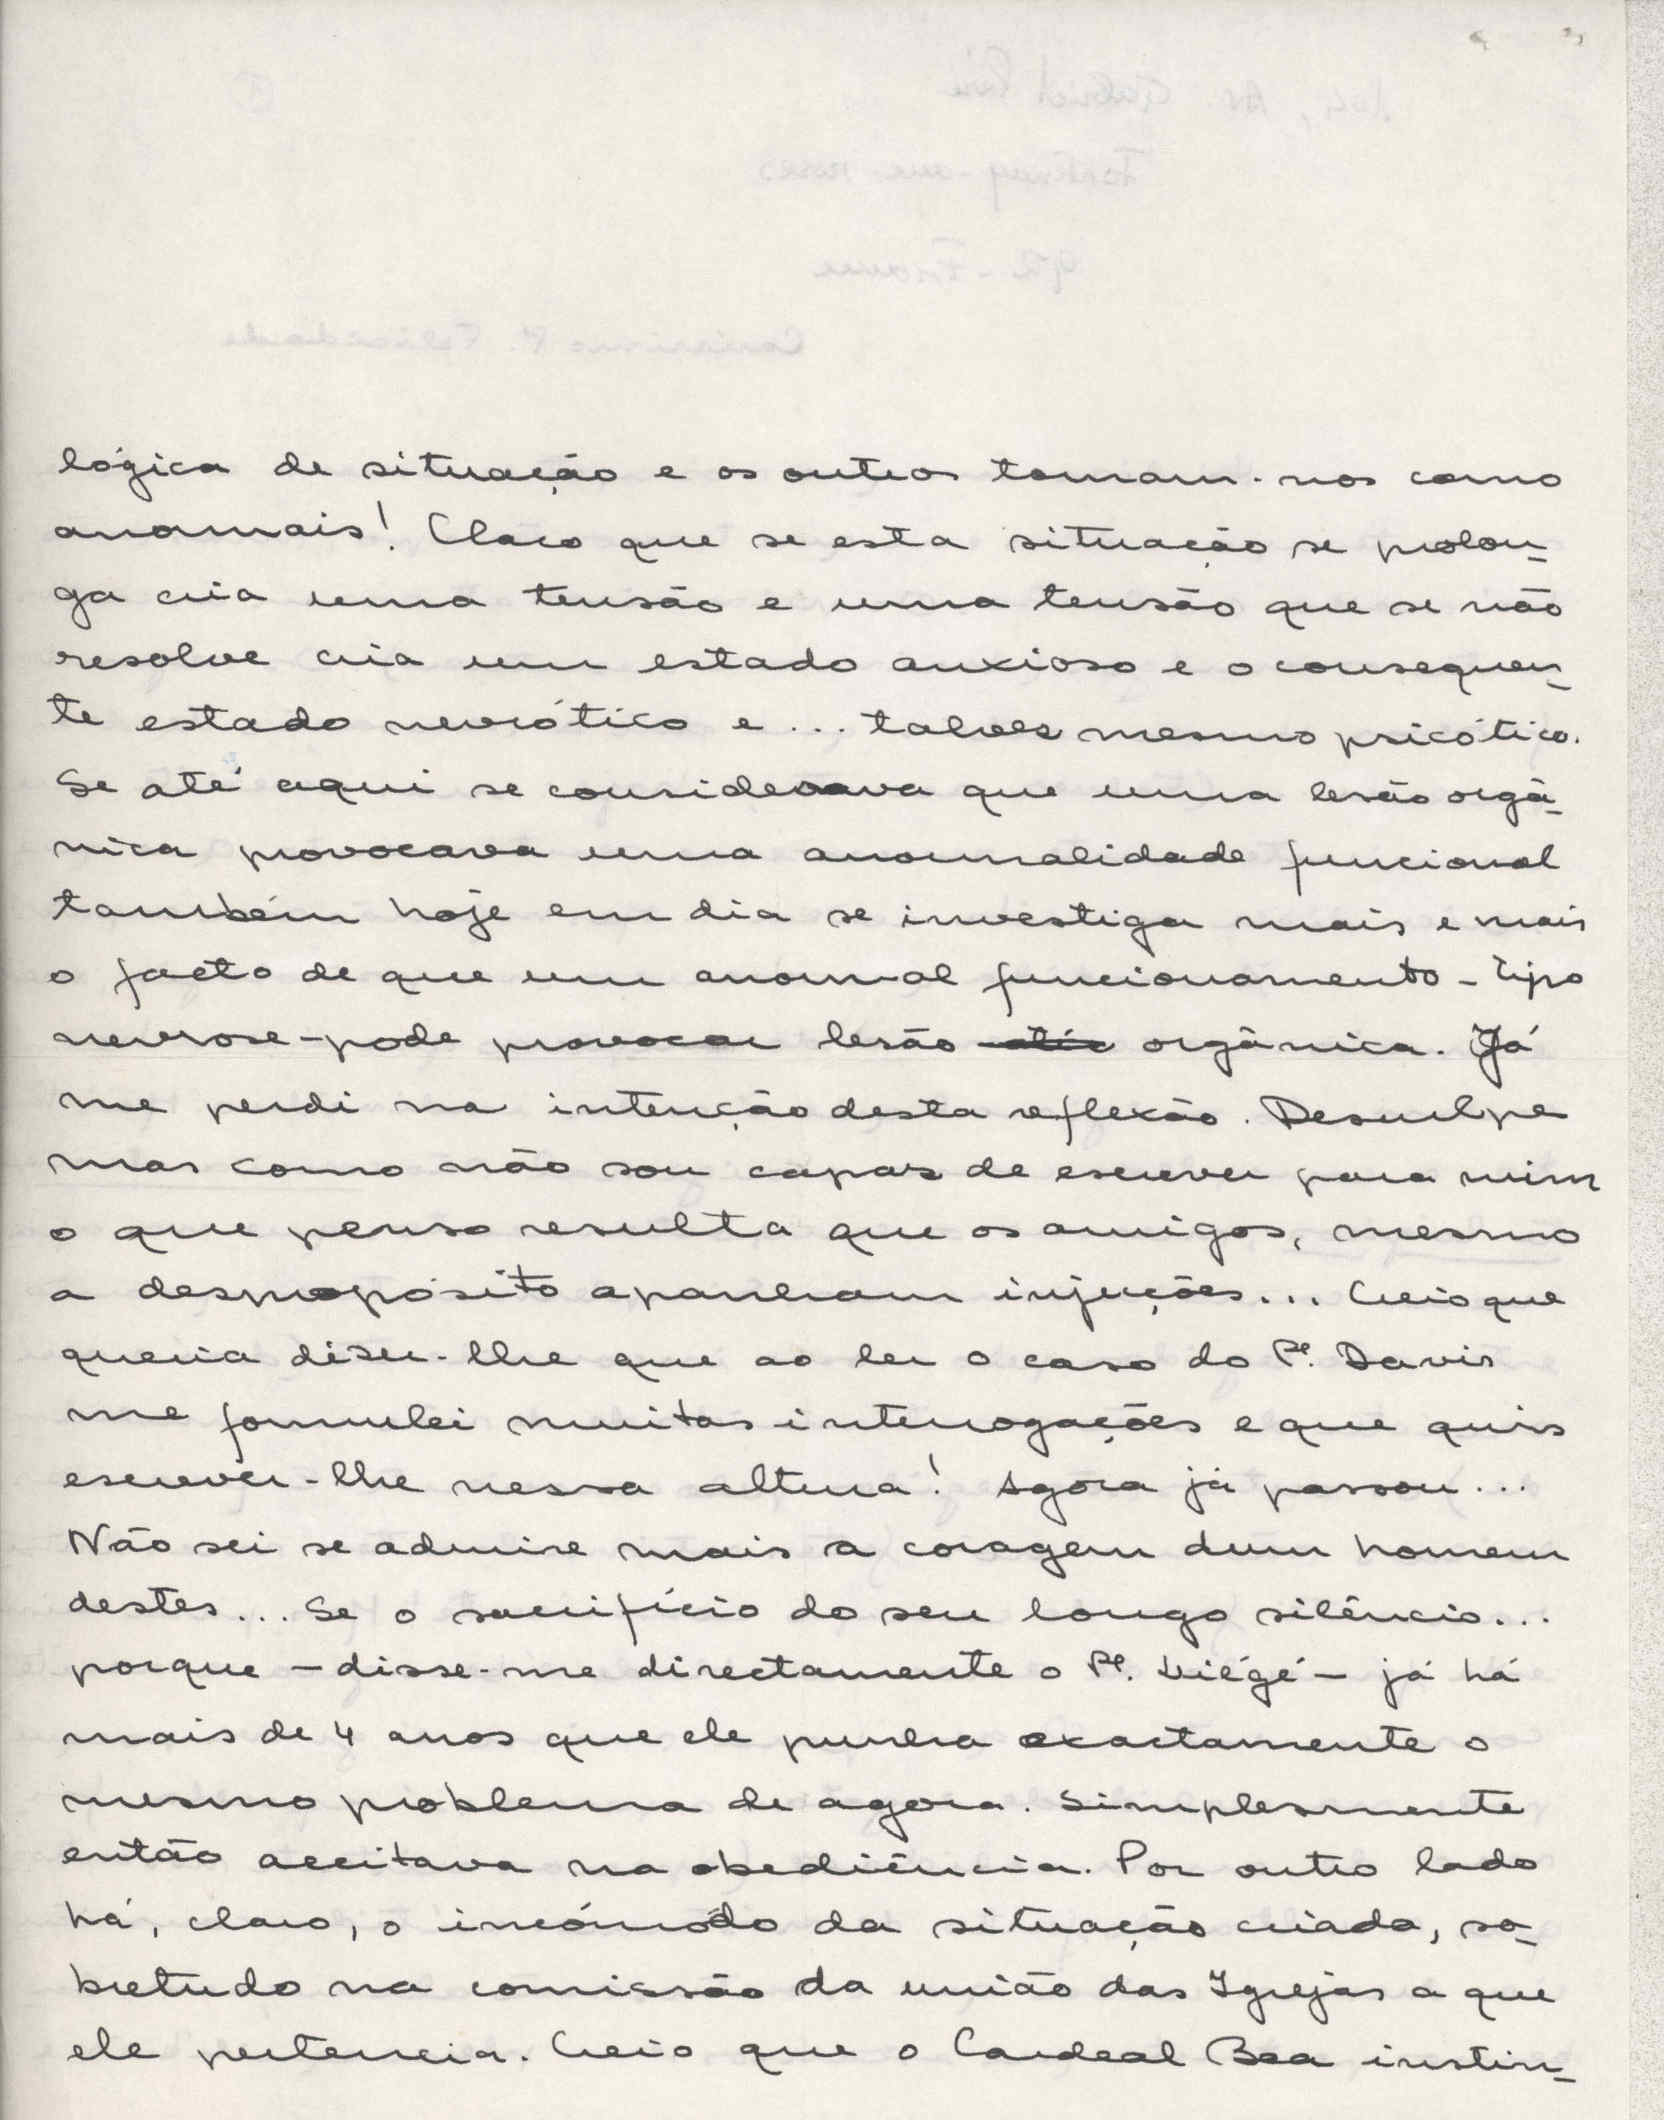 lógica de situação e os outros tomam-nos como
anormais! Claro que se esta situação se prolon-
ga cria uma tensão e uma tensão que se não
resolve cria um estado anxioso e o consequen-
te estado nevrótico e... talvez mesmo psicótico.
Se até aqui se considerava que uma lesão orgâ-
nica provocava uma anormalidade funcional
também hoje em dia se investiga mais e mais
o facto de que um anormal funcionamento - tipo
nevrose - pode provocar lesão orgânica. Já
me perdi na intenção desta reflexão. Desculpe
mas como não sou capaz de escrever para mim
o que penso resulta que os amigos, mesmo
a despropósito apanham injecções... Creio que
queria dizer-lhe que ao ler o caso do Pe. Davis
me formulei muitas interrogações e que quis
escrever-lhe nessa altura! Agora já passou...
Não sei se admire mais a coragem dum homem
destes... Se o sacrifício do seu longo silêncio...
porque - disse-me directamente o Pe. Liégé - já há
mais de 4 anos que ele punha exactamente o
mesmo problema de agora. Simplesmente
então aceitava na obediência. Por outro lado
há, claro, o incómodo da situação criada, so-
bretudo na comissão da união das Igrejas a que
ele pertencia. Creio que o Cardeal Bea instin-